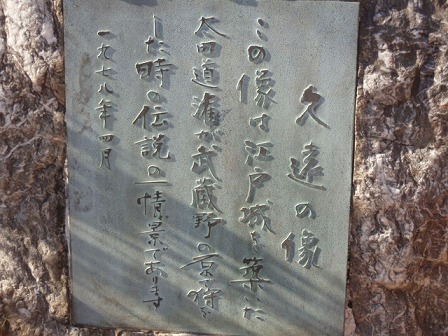 久遠の像
この像は江戸城を築いた
太田道灌が武蔵野の原で狩を
した時の伝説の一情景であります
一九七八年四月